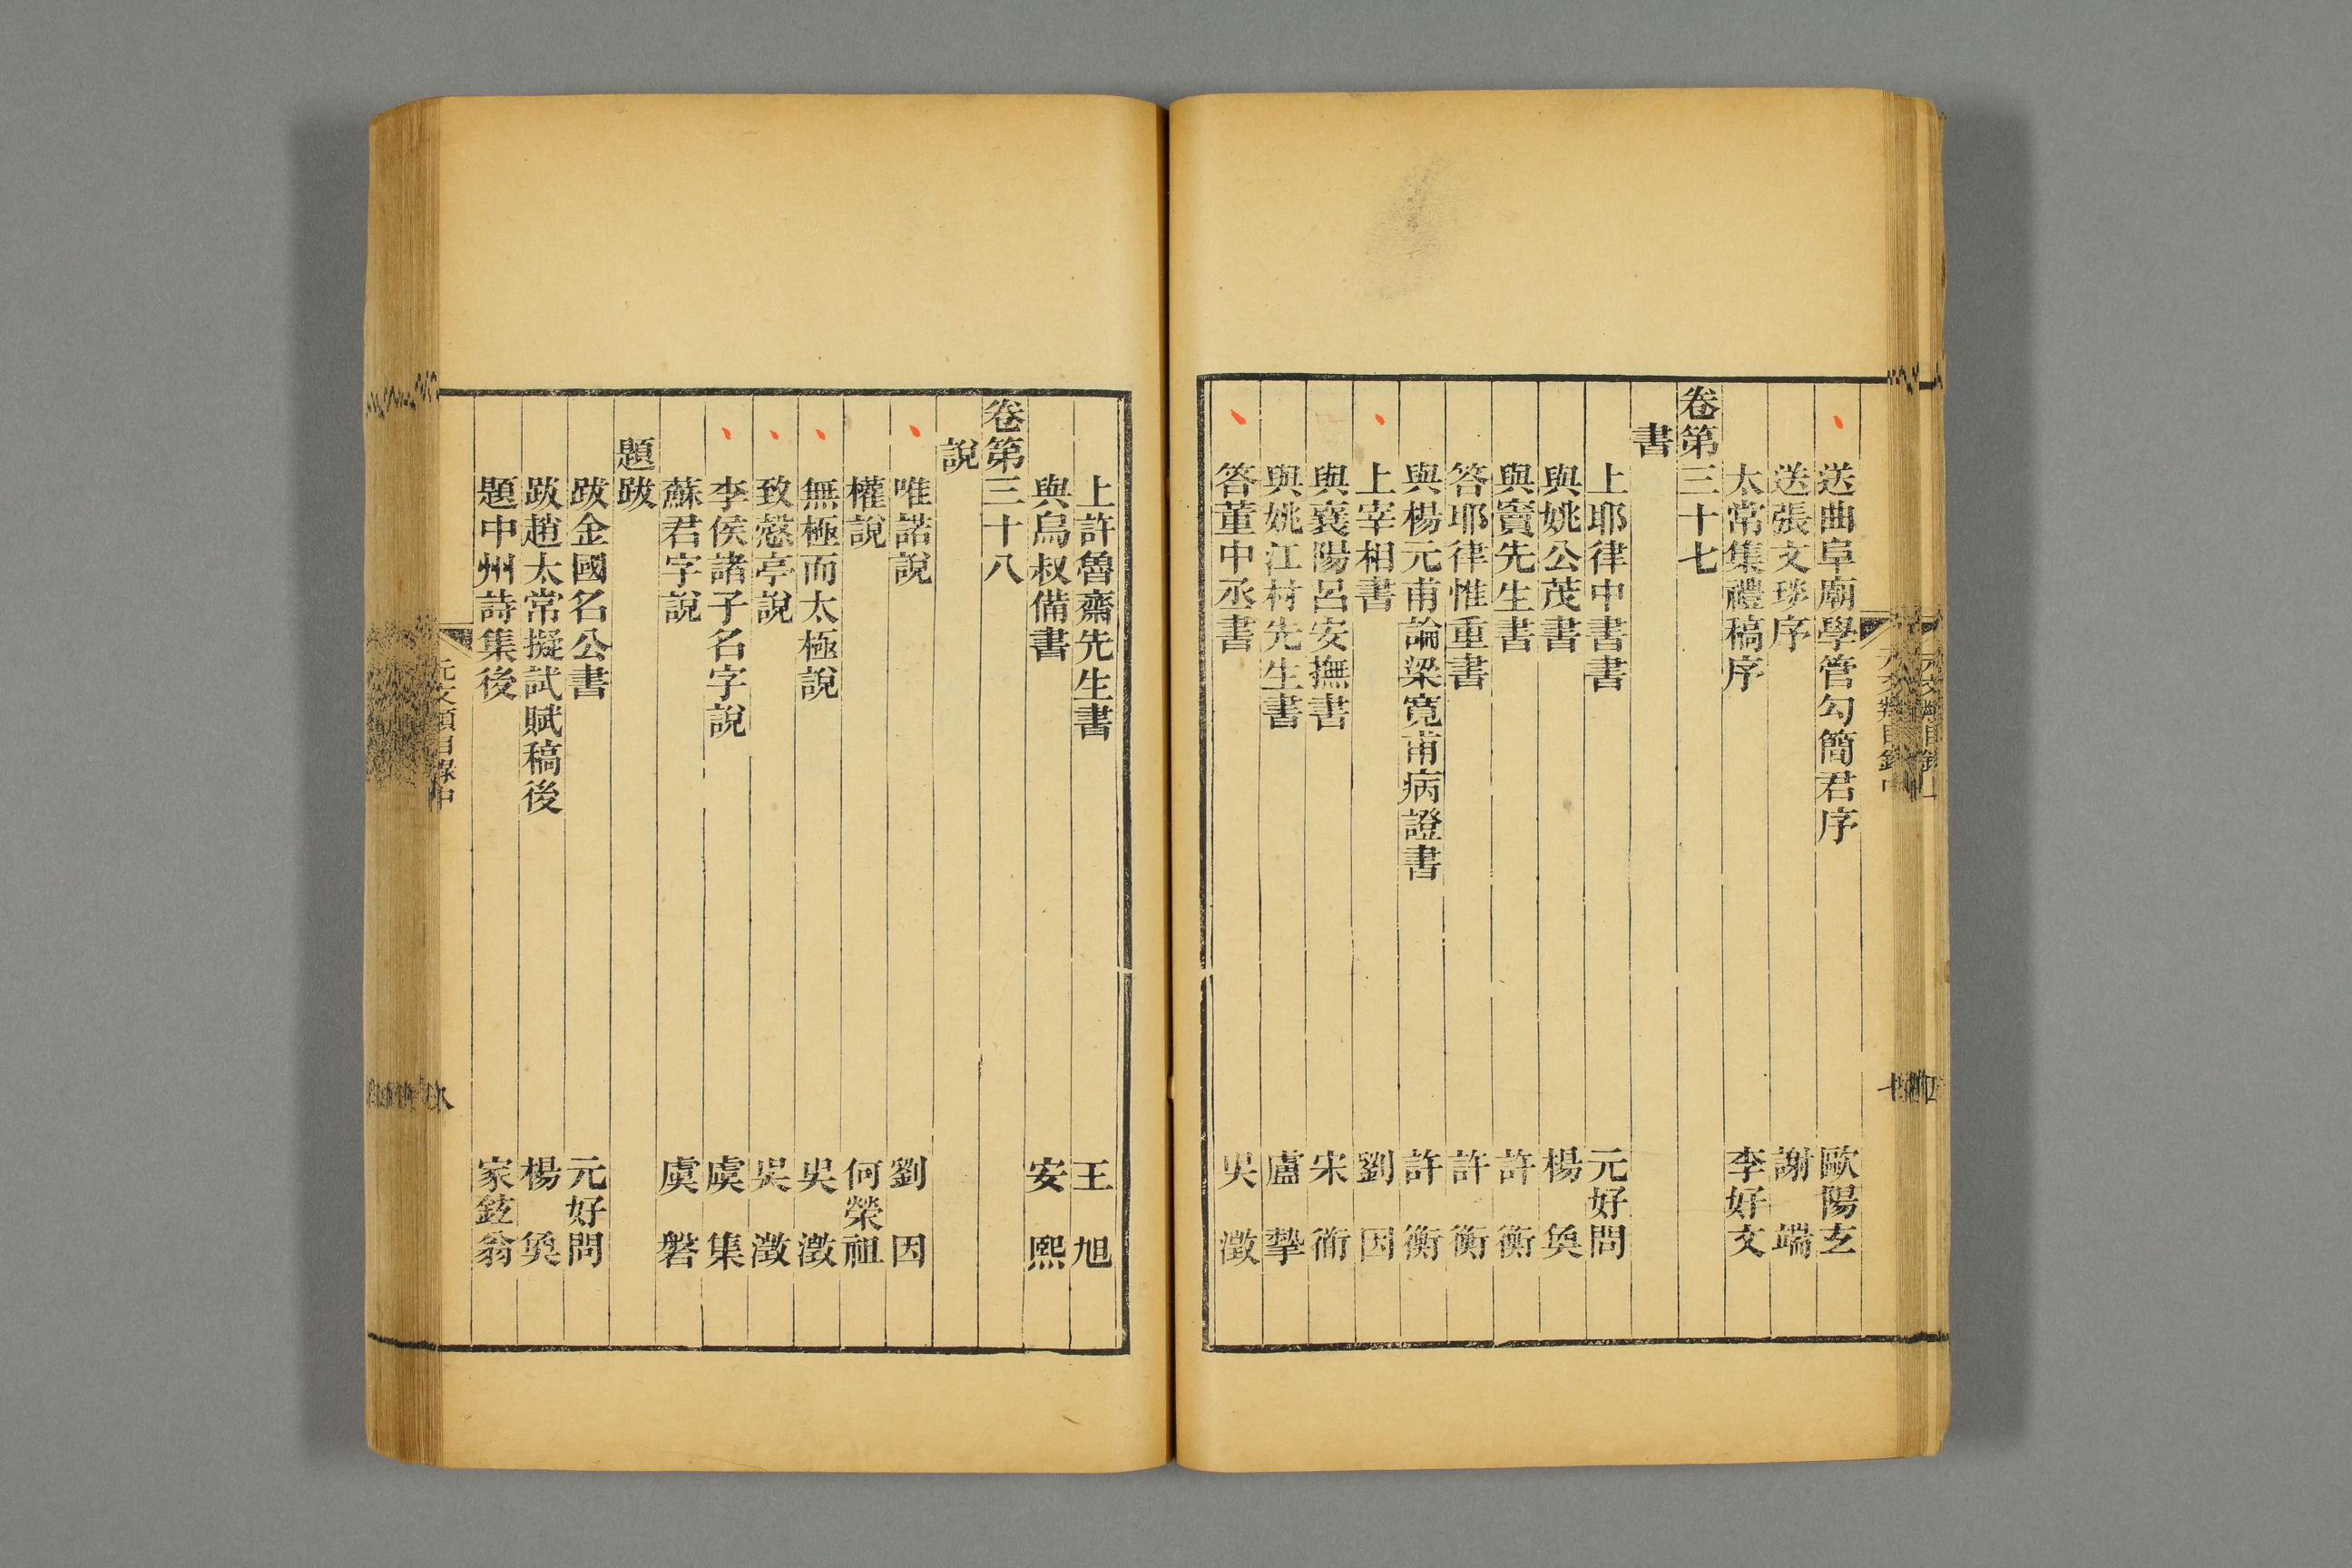 送曲阜廟學管勾簡君序 歐陽玄
送張文琰序 謝端
太常集禮稿序 李好文
卷第三十七
書
上耶律中書書 元好問
與姚公茂書 楊奐
與竇先生書 許衡
答耶律惟重書 許衡
與楊元甫論梁寬甫病證書 許衡
上宰相書 劉因
與襄陽呂安撫書 宋衜
與姚江村先生書 盧摯
答董中丞書 吳澂
上許魯齋先生書 王旭
與烏叔備書 安熙
卷第三十八
說
唯諾說 劉因
權說 何榮祖
無極而太極說 吳澂
致愨亭說 吳澂
李侯諸子名字說 虞集
蘇君字說 虞磐
題跋
跋金國名公書 元好問
跋趙太常擬試賦稿後 楊奐
題中州詩集後 家鉉翁
元文類目錄中